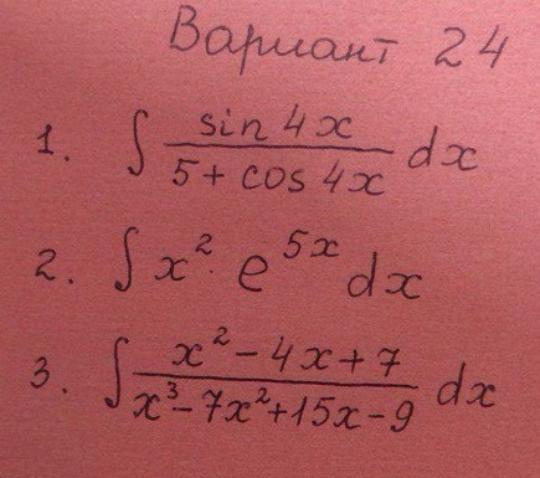 Вариант 24
1. ∫ \frac{sin 4x}{5 + cos 4x} dx
2. ∫ x² · e^{5x} dx
3. ∫ \frac{x² - 4x + 7}{x³ - 7x² + 15x - 9} dx